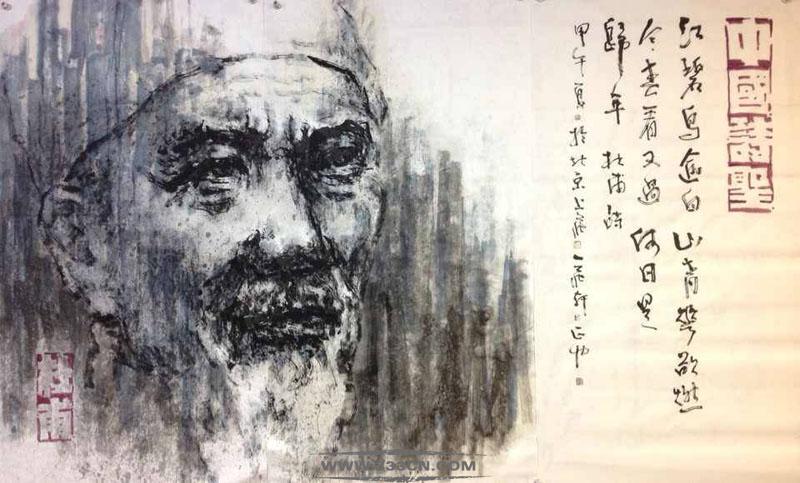 中國詩聖
江碧鳥逾白山青華欲燃
今春看又過何日是
歸年 杜甫詩
甲午夏日於北京上苑
杜甫
WWW.333CN.COM